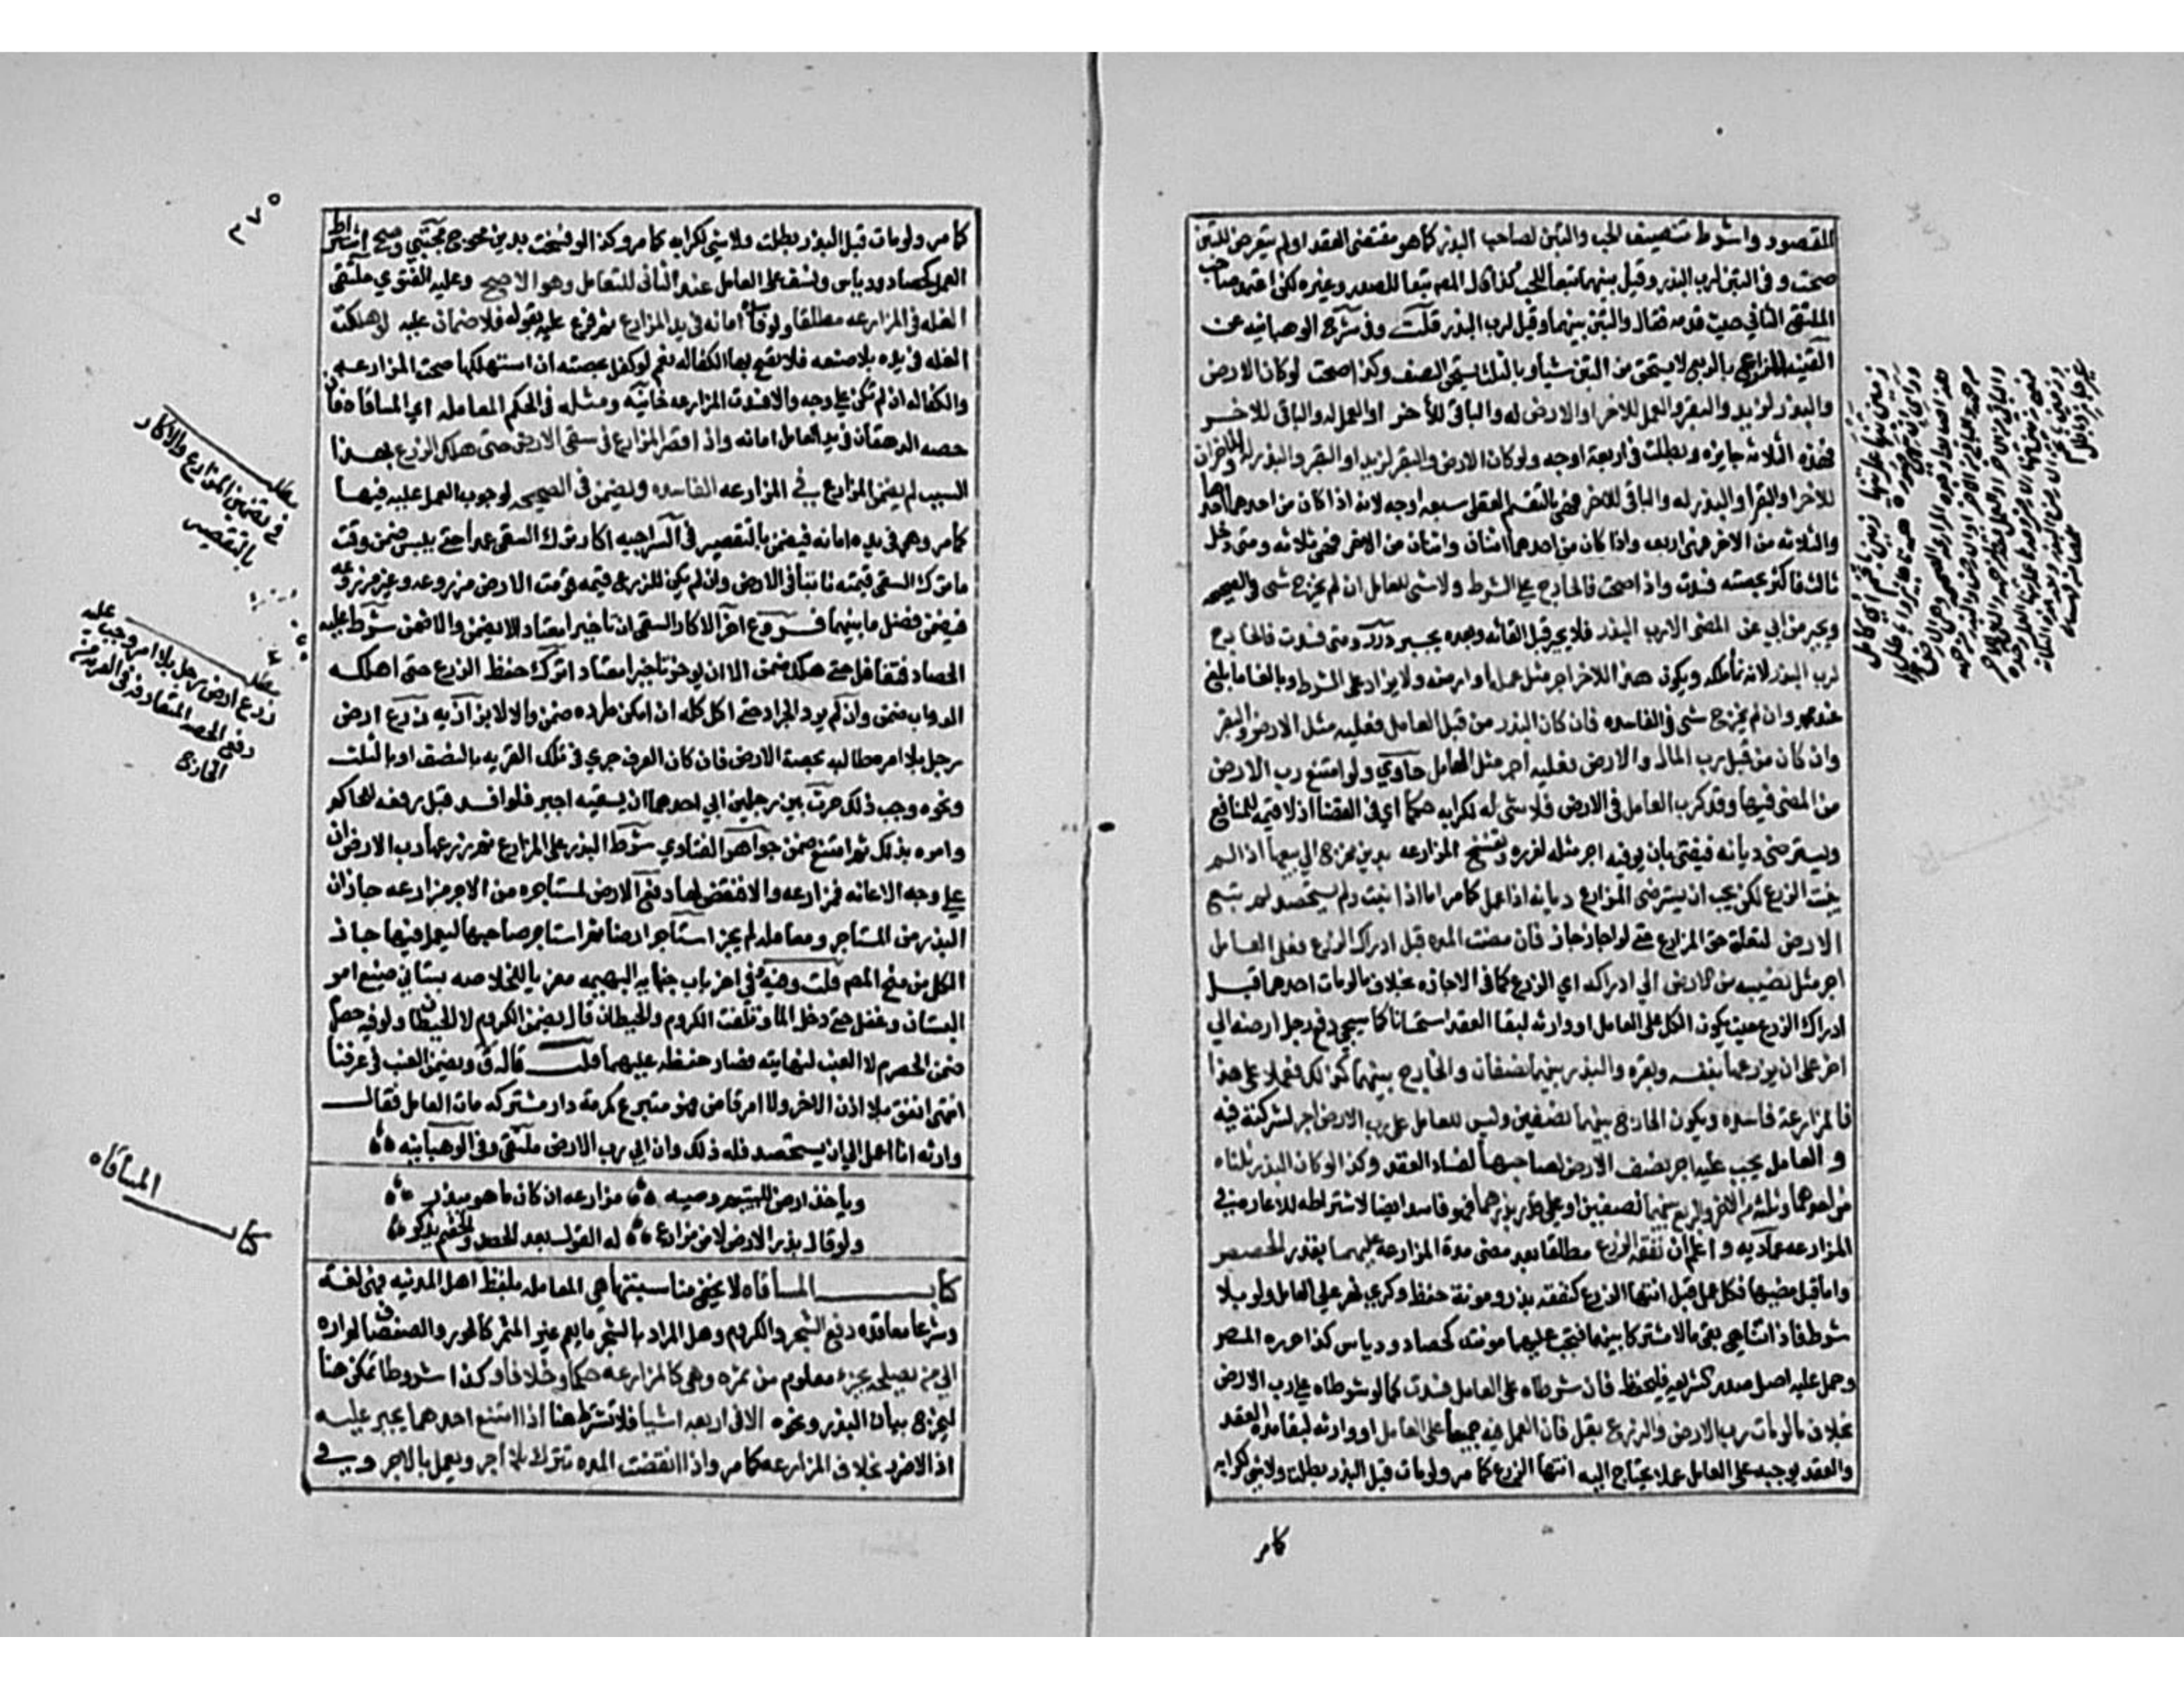 المقصود واشرط تنصيف الحب والتبن لصاحب البذر كما هو مقتضى العقد او لم يتعرض للتبن
صحت و في التبن لرب البذر وقيل بينهما تبعا للحب كذا قال المص تبعا للصدر وغيره لكن اعتمد صاحب
الملتقى الثاني حيث قدمه فقال والتبن بينهما وقيل لرب البذر قلت وفي شرح الوهبانيه عن
القنيه المزارع بالربع لا يستحق من التبن شيأ وبالثلث يستحق النصف وكذا صحت لو كان الارض
والبذر لزيد والبقر والعمل للاخر او الارض له والباقي للاخر او العمل له والباقي للاخر
فهذه الثلاثه جايزه وبطلت في اربعة اوجه ولو كان الارض والبقر لزيد او البقر والبذر له والاخران
للاخر او البقر او البذر له والباقي للاخر فهي بالتقسيم العقلي سبعه اوجه لانه اذا كان من احدهما احدها
والثلاثه من الاخر فهي اربعه واذا كان من احدهما اثنان واثنان من الاخر فهي ثلاثه ومتى دخل
ثالث فاكثر بحصته فسدت واذا صحت فالخارج على الشرط ولا شي للعامل ان لم يخرج شي في الصحيحه
ويجبر من ابي عن المضي الا رب البذر فلا يجبر قبل القائه وبعده يجبر درر ومتى فسدت فالخارج
لرب البذر لانه نماء ملكه ويكون للاخر اجر مثل عمله او ارضه ولا يزاد على الشرط وبالغا ما بلغ
عند محمد وان لم يخرج شي في الفاسده فان كان البذر من قبل العامل فعليه مثل الارض والبقر
وان كان من قبل رب المال والارض فعليه اجر مثل العامل حاوي ولو امتنع رب الارض
من المضي فيها وقد كرب العامل في الارض فلا شي له لكرابه حكما اي في القضا اذ لا قيمه للمنافع
ويسترضى ديانه فيفتى بان يوفيه اجر مثله لغرره وتفسخ المزارعه بدين محوج الى بيعها اذا لم
ينبت الزرع لكن يجب ان يسترضى المزارع ديانه اذا عمل كما مر اما اذا نبت ولم يستحصد لم تبع
الارض لتعلق حق المزارع حتى لو اجاز جاز فان مضت المده قبل ادراك الزرع فعلى العامل
اجر مثل نصيبه من الارض الى ادراكه اي الزرع كما في الاجازه بخلاف ما لو مات احدهما قبل
ادراك الزرع حيث يكون الكل على العامل او وارثه لبقا العقد استحسانا كما سيجي دفع رجل ارضه الى
اخر على ان يزرعها بنفسه وبقره والبذر بينهما نصفان والخارج بينهما كذلك فعملا على هذا
فالمزارعة فاسده ويكون الخارج بينهما نصفين وليس للعامل على رب الارض اجر لشركته فيه
و العامل يجب عليه اجر نصف الارض لصاحبها لفساد العقد وكذا لو كان البذر ثلثاه
من احدهما وثلثه من الاخر والريع بينهما نصفين او على قدر بذرهما فهو فاسد ايضا لاشتراطه الاعاره في
المزارعه عماديه و اعلم ان نفقه الزرع مطلقا بعد مضي مدة المزارعه عليهما بقدر الحصص
واما قبل مضيها فكل عمل قبل انتها الزرع كنفقه بذر ومونة حفظ وكري نهر على العامل ولو بلا
شرط فاذا تناهي بقي مالا مشتركا بينهما فتجب عليهما مونته كحصاد ودياس كذا حرره المص
وحمل عليه اصل صدر الشريعه فليحفظ فان شرطاه على العامل فسدت كما لو شرطاه على رب الارض
بخلاف ما لو مات رب الارض والزرع بقل فان العمل فيه جميعا على العامل او وارثه لبقا مدة العقد
والعقد يوجب على العامل عملا يحتاج اليه انتها الزرع كما مر ولو مات قبل البذر بطلت ولا شي لكرابه
كامر
٣٧٥
كامر ولو مات قبل البذر بطلت ولا شي لكرابه كما مر وكذا لو فسخت بدين محوج مجتبي وصح اشتراط
العمل كحصاد ودياس ونسف على العامل عند الثاني للتعامل وهو الاصح وعليه الفتوي ملتقى
الغله في المزارعه مطلقا ولو فاسدة امانه في يد المزارع ثم فرع عليه بقوله فلا ضمان عليه لو هلكت
الغله في يده بلا صنعه فلا تصح بها الكفاله نعم لو كفل بحصته ان استهلكها صحت المزارعه
والكفاله ان لم تكن على وجه والا فسدت المزارعه خانيه ومثله في الحكم المعامله اي المساقاه فان
حصه الدهقان في يد العامل امانه واذا قصر المزارع في سقي الارض حتى هلك الزرع بهذا
السبب لم يضمن المزارع في المزارعه الفاسده ويضمن في الصحيحه لوجوب العمل عليه فيها
كما مر وهي في يده امانه فيضمن بالتقصير في السراجيه اكار ترك السقي عمدا حتى يبس ضمن وقت
ما ترك السقي قيمته نابتا في الارض وان لم يكن للزرع قيمه قومت الارض مزروعه وغير مزروعه
فيضمن فضل ما بينهما فروع اخر الاكار السقي ان تاخيرا معتادا لا يضمن والا ضمن شرط عليه
الحصاد فتغافل حتى هلك ضمن الا ان يوخر تاخيرا معتادا ترك حفظ الزرع حتى اهلكه
الدواب ضمن وان لم يرد الجراد حتى اكل كله ان امكن طرده ضمن والا لا بزازيه زرع ارض
رجل بلا امره طالبه بحصة الارض فان كان العرف جري في تلك القريه بالنصف او بالثلث
ونحوه وجب ذلك حرث بين رجلين ابي احدهما ان يسقيه اجبر فلو فسد قبل رفعه للحاكم
وامره بذلك ثم امتنع ضمن جواهر الفتاوي شرط البذر على المزارع ثم زرعها رب الارض ان
على وجه الاعانه فمزارعه والا فنقض لها دفع الارض لمستاجره من الاجر مزارعه جاز ان
البذر من المستاجر ومعامله لم يجز استاجر ارضا ثم استاجر صاحبها ليعمل فيها جاز
الكل من منح المص قلت وفيه في اخر باب جنايه البهيمه معزيا للخلاصه بستاني ضيع امر
البستان وغفل حتى دخل الماء وتلفت الكروم والحيطان قال يضمن الكروم لا الحيطان ولو فيه حصرم
ضمن الحصرم لا العنب لنهايته فصار حفظه عليهما قلت قال ق ويضمن العنب في عرفنا
انتهى انفق بلا اذن الاخر ولا امر قاض فهو متبرع كمرمة دار مشتركه مات العامل فقال
وارثه انا اعمل الى ان يستحصد فله ذلك وان ابي رب الارض ملتقى وفي الوهبانيه
وياخذ ارض لليتيم وصيه مزارعه ان كان ما هو يبذر
ولو قال بذر الارض لا من مزارع له القول بعد الحصد والخصم ينكر
كتاب المساقاه لا يخفى مناسبتها هي المعامله بلفظ اهل المدينه فهي لغة
وشرعا معاقده دفع الشجر والكروم وهل المراد بالشجر ما يعم غير المثمر كالحور والصفصاف لم اره
الى من يصلحه بجزء معلوم من ثمره وهي كالمزارعه حكما وخلافا وكذا شروطا تمكن هنا
ليخرج بيان البذر ونحوه الا في اربعه اشيا فلا تشترط هنا اذا امتنع احدهما يجبر عليه
اذ لا ضرر بخلاف المزارعه كما مر واذا انقضت المده تترك بلا اجر ويعمل بلا اجر وفي
مطلب
في تضمين المزارع والاكار
بالتقصير
مطلب
زرع ارض رجل بلا امره وجب عليه
دفع الحصه المتعارفه في القريه من
الخارج
كتاب المساقاه